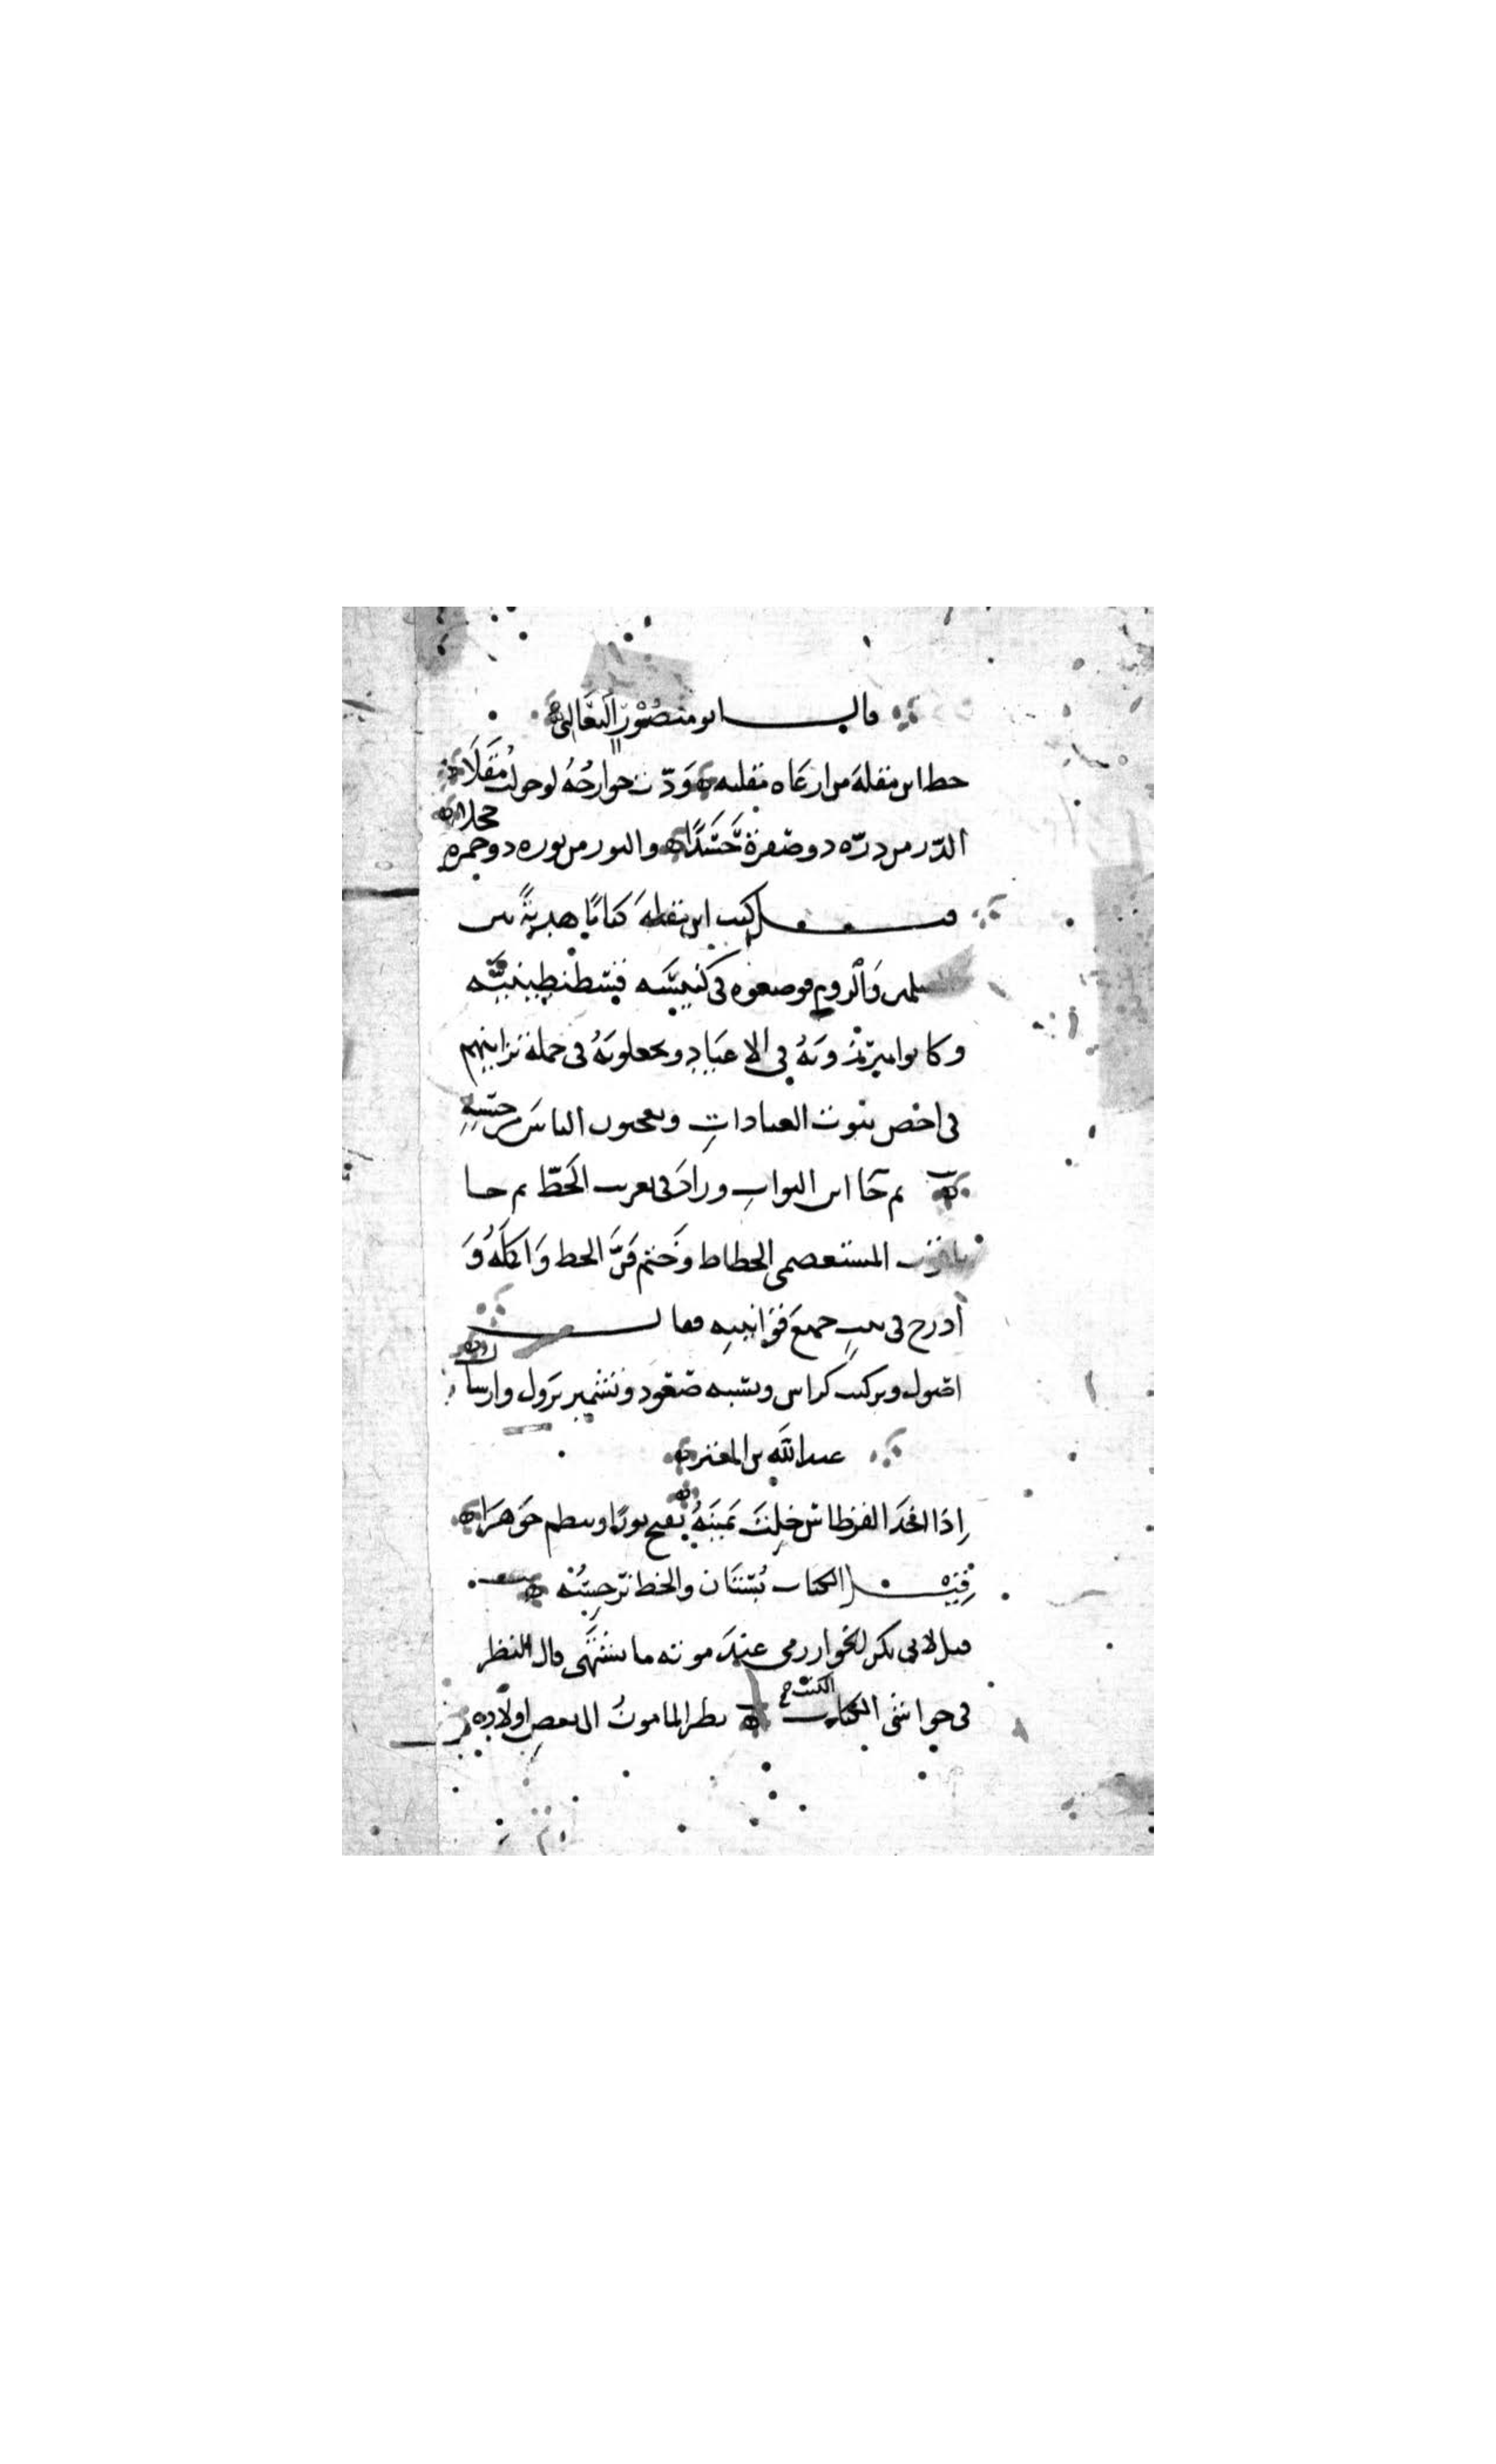 قال ابو منصور الثعالبى
خط ابن مقلة من ارعاه مقلته ودّت جوارحُهُ لو حولت مُقَلَا
الدّر من درّه ذو صفرة حَسَدًا والنور من نوره ذو حمرة خجلا
قيل كتب ابن مقلة كتابًا هدنةً بين
المسلمين وَالروم فوضعوه فى كنيسة قسطنطينية
وكانوا يبرزونه فى الاعياد ويجعلونهُ فى جملة تزايينهم
فى اخص بيوت العبادات ويعجبون الناسَ من حسنِهِ
ثم جَا ابن البواب وزادَ فى تعريب الخَطّ ثم جا
ياقوت المستعصمى الخطاط وَختم فَنَّ الخط وَاكملَهُ وَ
أدرج فى بيتٍ جميعَ قوانينه فقال
اصول وتركيب كراس ونسبه صعود وتشمير نزول وارسال
عبد اللّه بن المعتز
اِذا اخذَ القرطاسَ خِلتَ يمينَهُ يفتح نورًا وينظم جَوهرَا
قيل الكتاب بُستان والخط نرجسُه
قيل لابى بكر الخوارزمى عند موته ما تشتهى قال النظر
فى حواشى الكتاب الكتب نظر المامونُ الى بعضِ اولاده